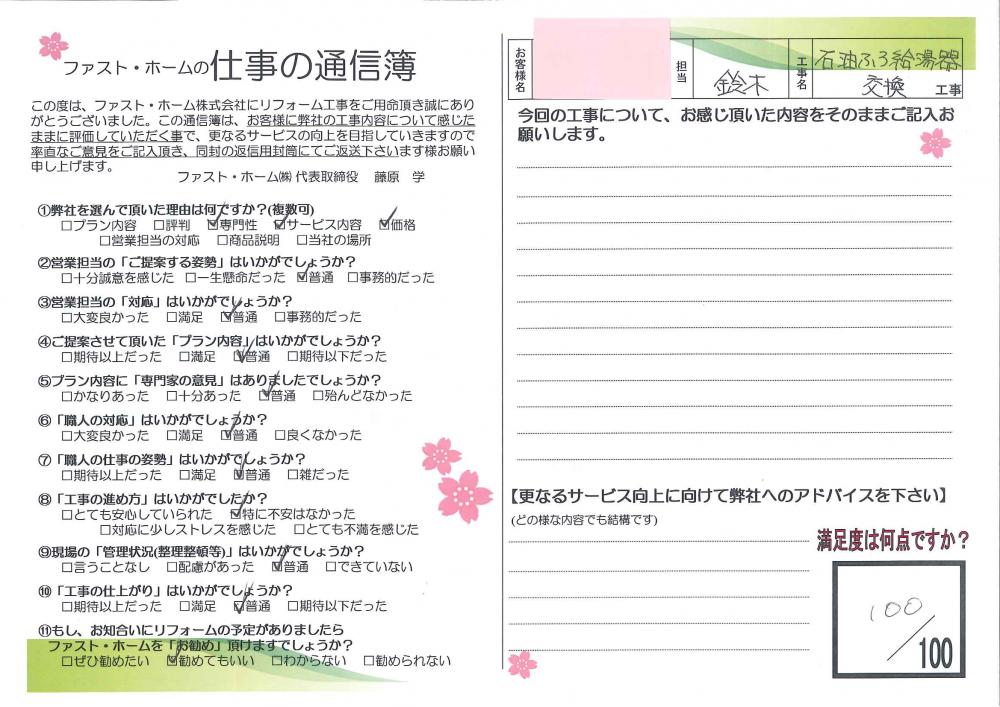 ファスト・ホームの仕事の通信簿
この度は、ファスト・ホーム株式会社にリフォーム工事をご用命頂き誠にあり
がとうございました。この通信簿は、お客様に弊社の工事内容について感じた
ままに評価していただく事で、更なるサービスの向上を目指していきますので
率直なご意見をご記入頂き、同封の返信用封筒にてご返送下さいます様お願い
申し上げます。
ファスト・ホーム㈱ 代表取締役 藤原 学
①弊社を選んで頂いた理由は何ですか?(複数可)
□プラン内容 □評判 ☑専門性 ☑サービス内容 ☑価格
□営業担当の対応 □商品説明 □当社の場所
②営業担当の「ご提案する姿勢」はいかがでしょうか?
□十分誠意を感じた □一生懸命だった ☑普通 □事務的だった
③営業担当の「対応」はいかがでしょうか?
□大変良かった □満足 ☑普通 □事務的だった
④ご提案させて頂いた「プラン内容」はいかがでしょうか?
□期待以上だった □満足 ☑普通 □期待以下だった
⑤プラン内容に「専門家の意見」はありましたでしょうか?
□かなりあった □十分あった ☑普通 □殆んどなかった
⑥「職人の対応」はいかがでしょうか?
□大変良かった □満足 ☑普通 □良くなかった
⑦「職人の仕事の姿勢」はいかがでしょうか?
□期待以上だった □満足 ☑普通 □雑だった
⑧「工事の進め方」はいかがでしたか?
□とても安心していられた ☑特に不安はなかった
□対応に少しストレスを感じた □とても不満を感じた
⑨現場の「管理状況(整理整頓等)」はいかがでしょうか?
□言うことなし □配慮があった ☑普通 □できていない
⑩「工事の仕上がり」はいかがでしょうか?
□期待以上だった □満足 ☑普通 □期待以下だった
⑪もし、お知合いにリフォームの予定がありましたら
ファスト・ホームを「お勧め」頂けますでしょうか?
□ぜひ勧めたい ☑勧めてもいい □わからない □勧められない
お客様名
担当 鈴木
工事名 石油ふろ給湯器
交換 工事
今回の工事について、お感じ頂いた内容をそのままご記入お
願いします。
【更なるサービス向上に向けて弊社へのアドバイスを下さい】
(どの様な内容でも結構です)
満足度は何点ですか?
100/100